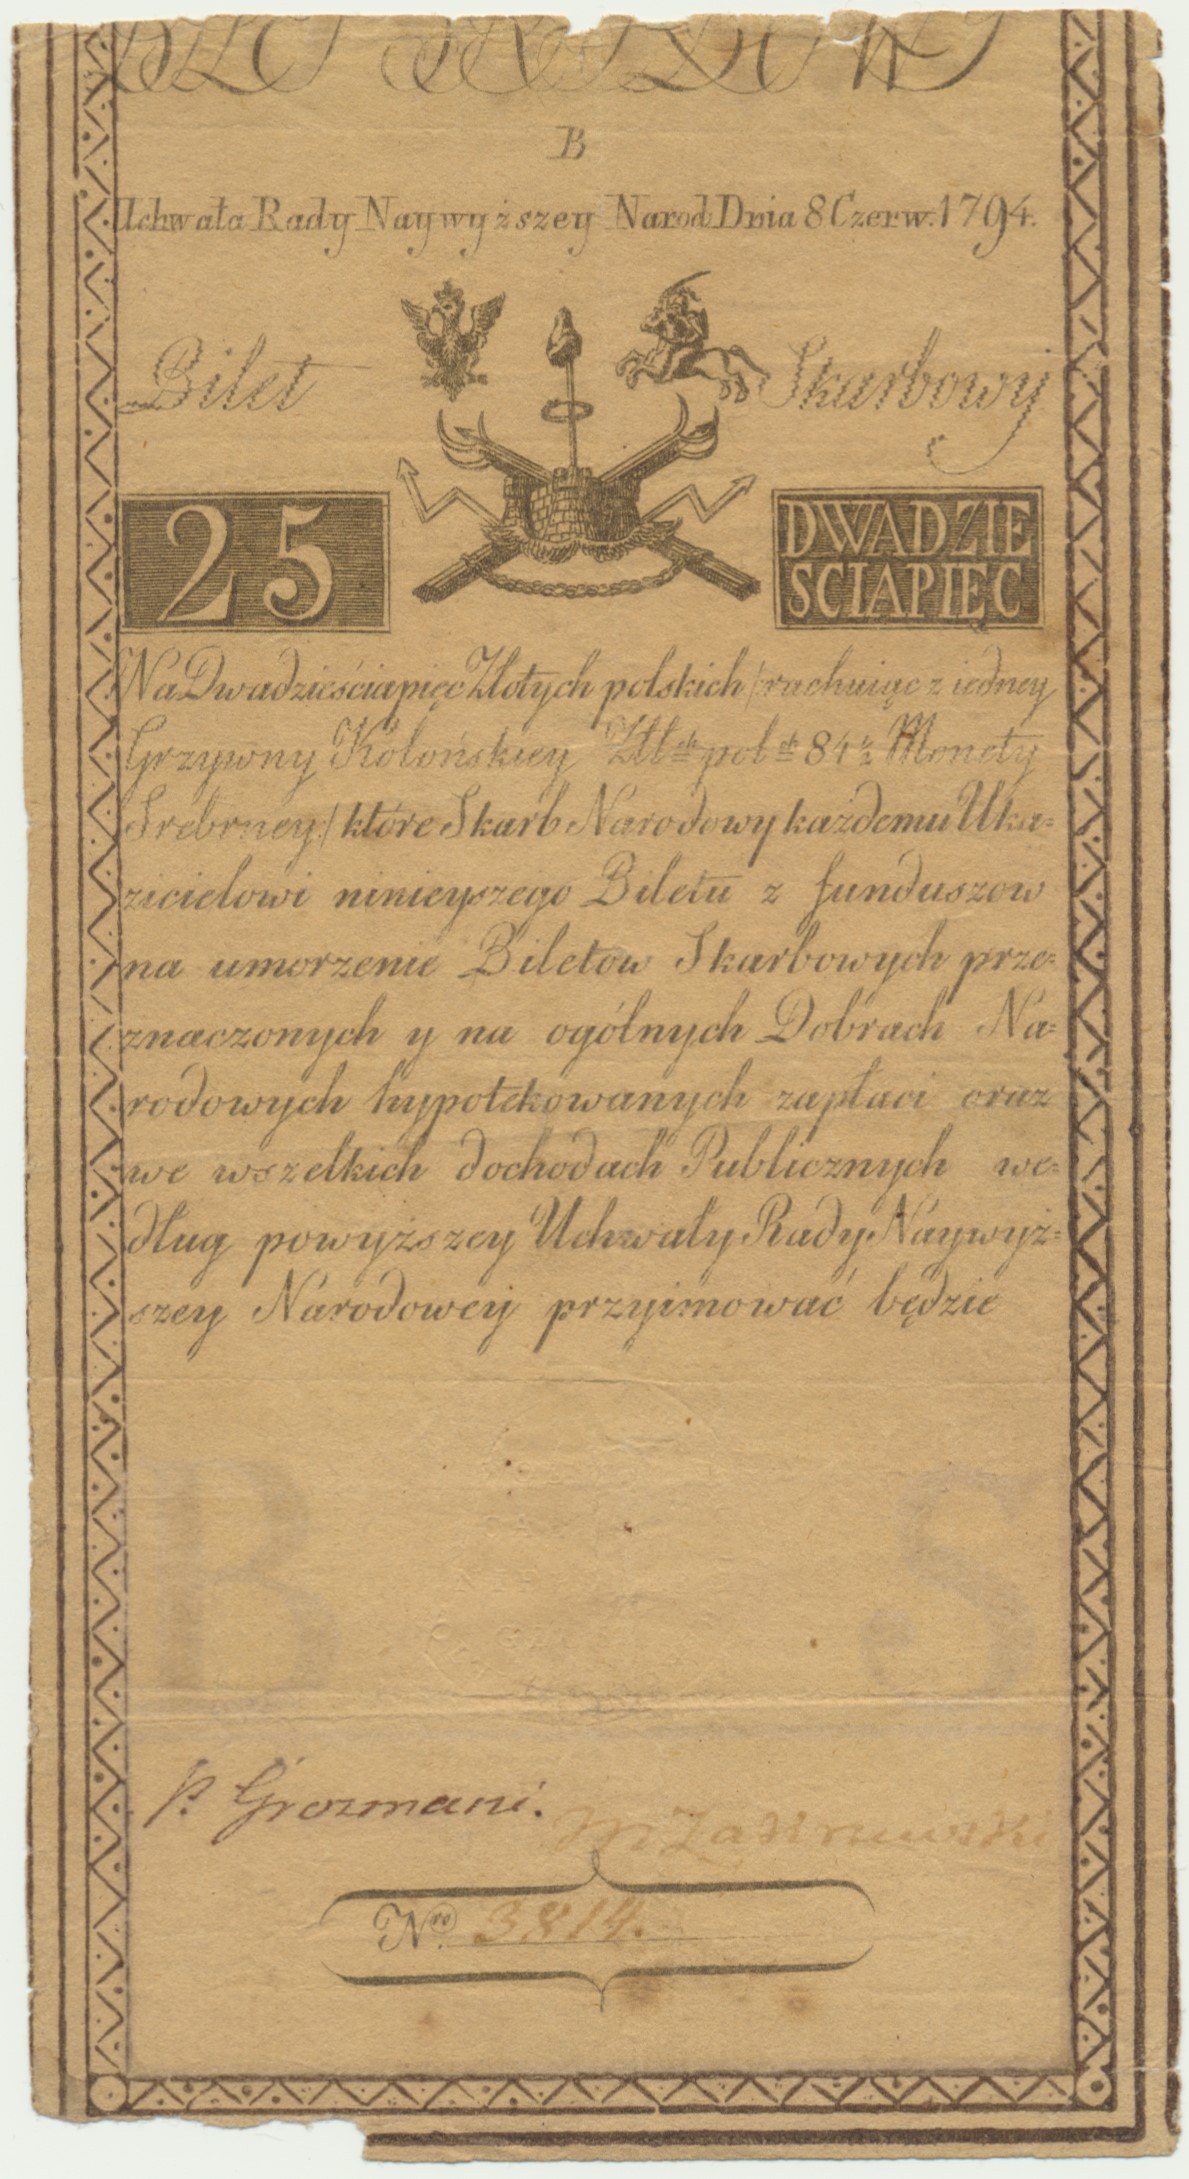 B
Uchwała Rady Naywyższey Narod: Dnia 8 Czerw. 1794.
Bilet Skarbowy
25
DWADZIE
SCIAPIĘC
Na Dwadzieściapięć Złotych polskich /:rachuiąc z iedney
Grzywny Kolońskiey Złł ch pol ch 84 ½ Monety
Srebrney:/ które Skarb Narodowy każdemu Uka=
zicielowi ninieyszego Biletu z funduszow
na umorzenie Biletow Skarbowych prze=
znaczonych y na ogólnych Dobrach Na=
rodowych hypotekowanych zapłaci oraz
we wszelkich dochodach Publicznych we=
dług powyższey Uchwały Rady Naywyż=
szey Narodowey przyimować będzie
B S
p. Grozmani.
M Zakrzewski
Nro 3814.